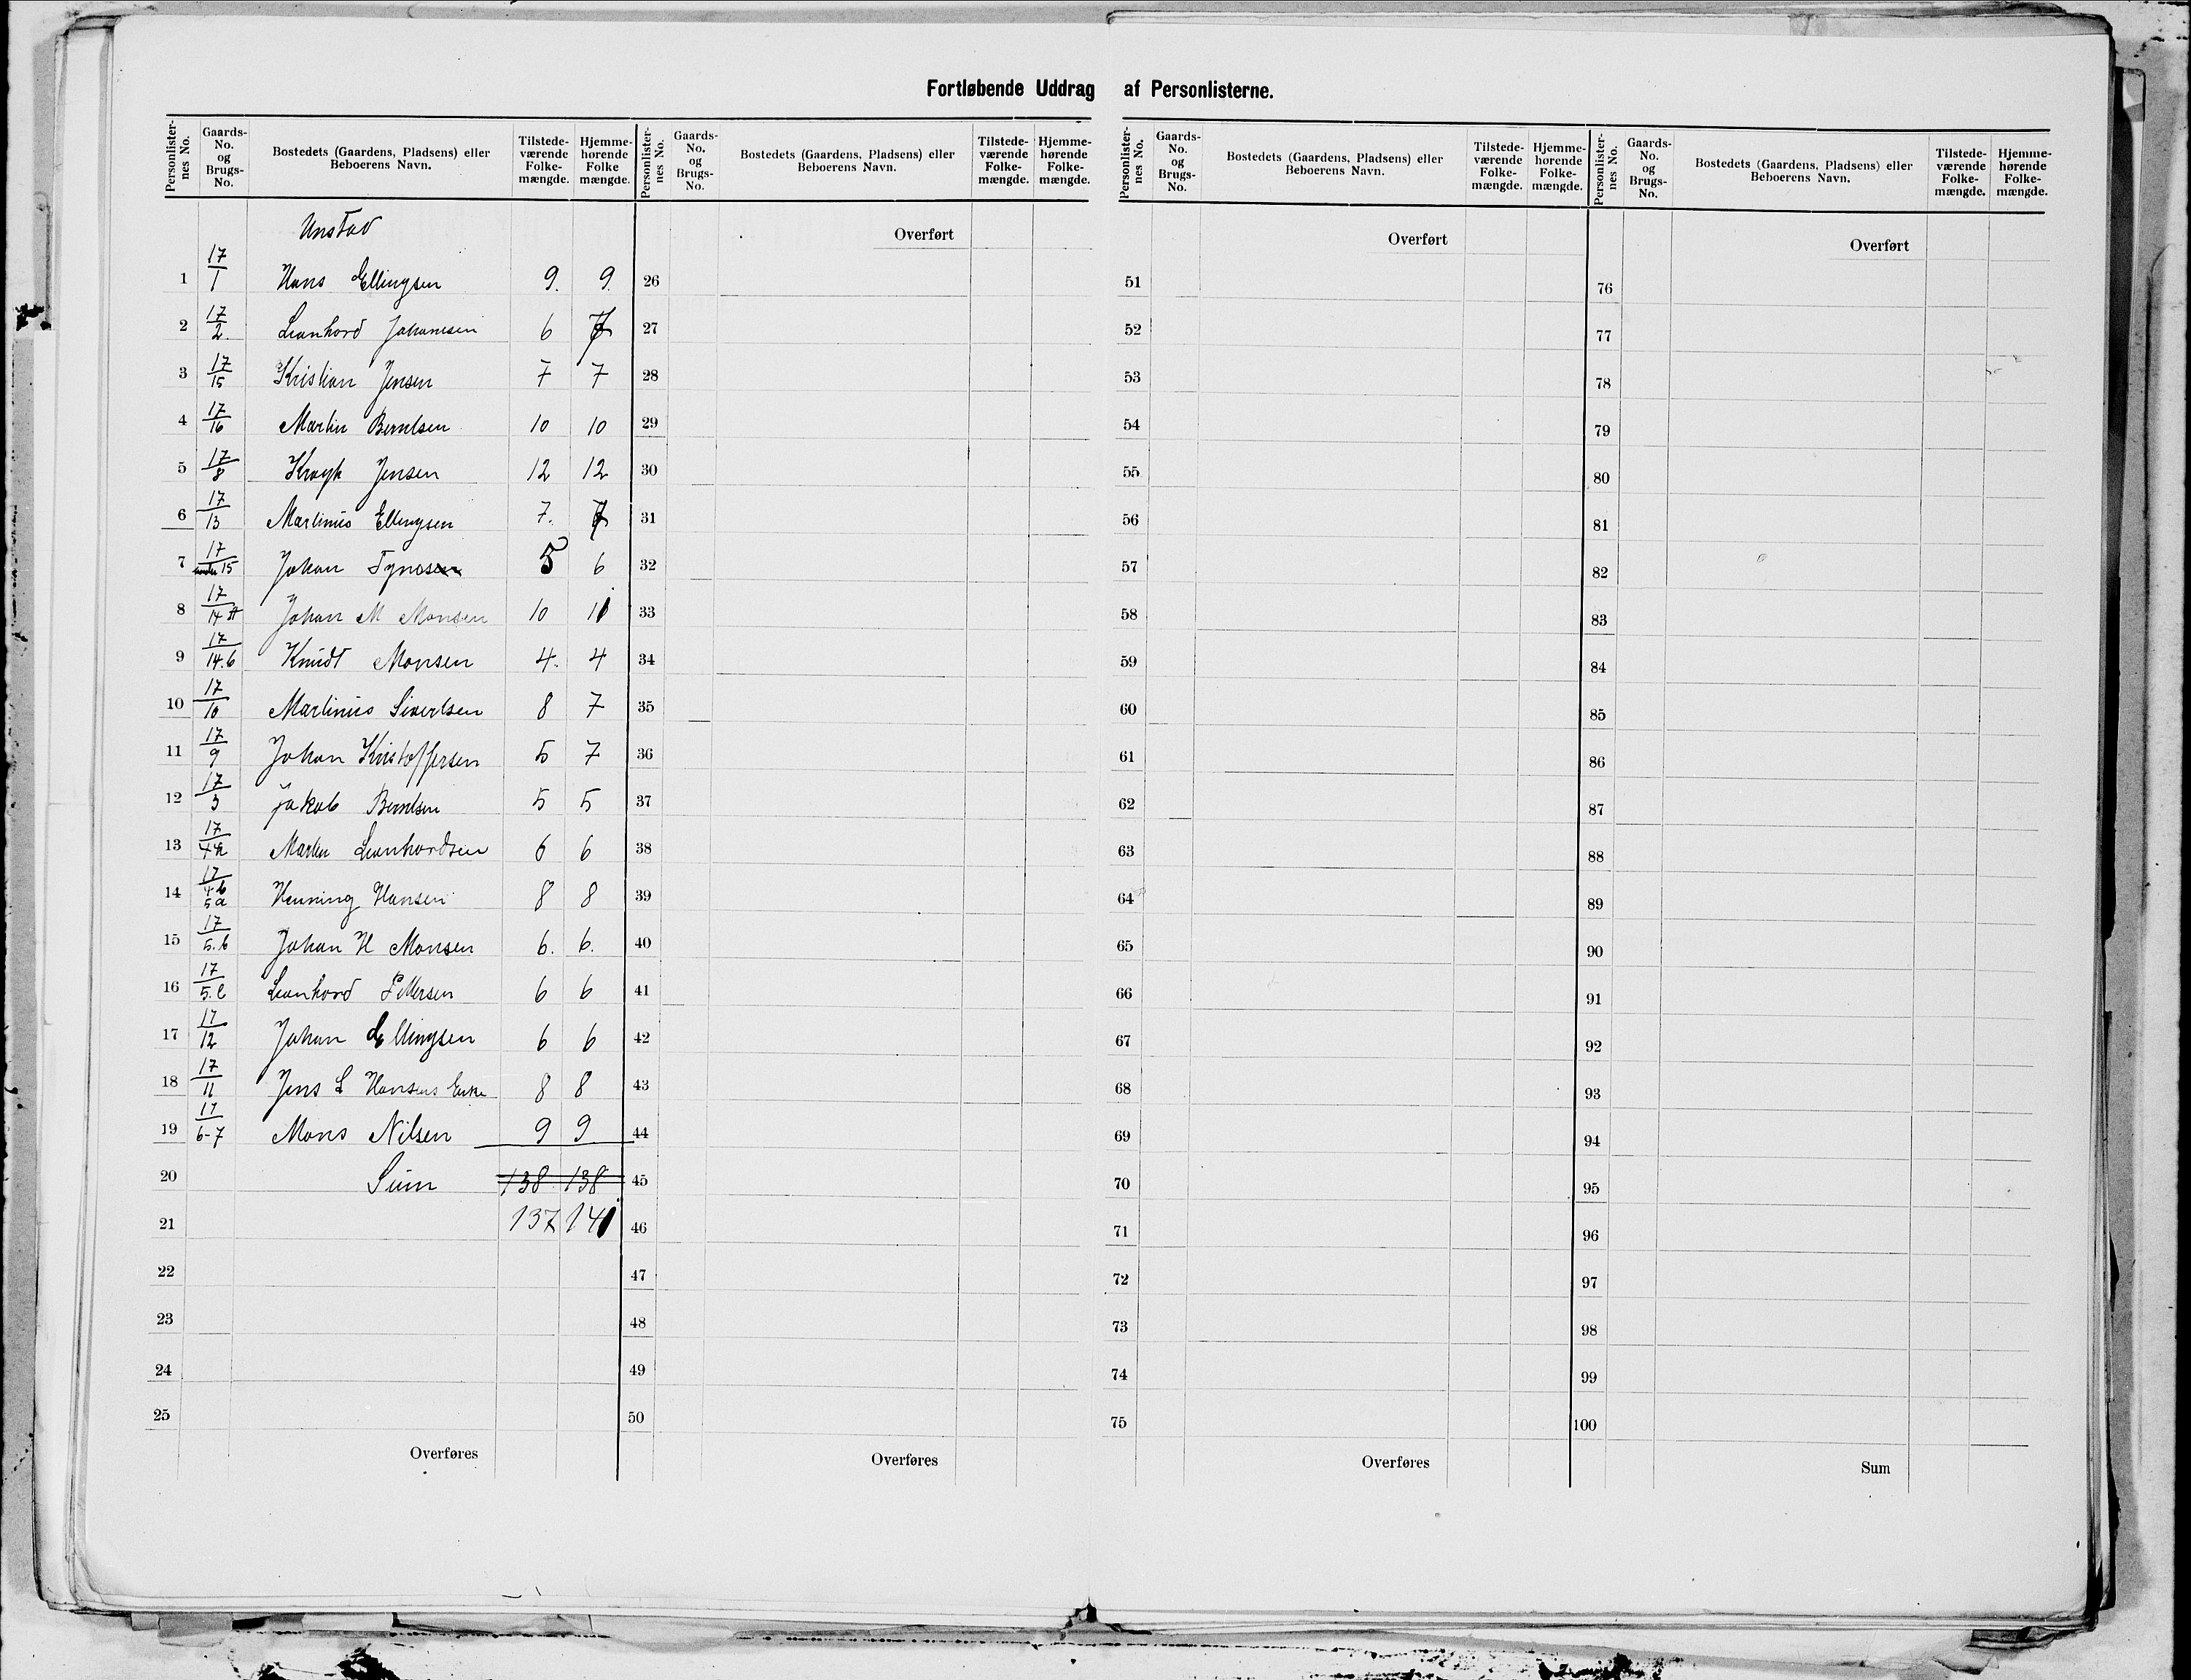 Fortløbende Uddrag af Personlisterne.
Personlister-nes No. Gaards-No. og Brugs-No. Bostedets (Gaardens, Pladsens) eller Beboerens Navn. Tilstede-værende Folke-mængde. Hjemme-hørende Folke mængde.
Unstad
1 17/1 Hans Ellingsen 9. 9.
2 17/2. Leonhard Johansen 6 7
3 17/15 Kristian Jensen 7 7
4 17/16 Martin Berntsen 10 10
5 17/8 Jensen 12 12
6 17/13 Martinus Ellingsen 7. 7
7 17/under 15 Johan 5 6
8 17/14 a Johan M Monsen 10 11
9 17/14.b Knudt Monsen 4. 4
10 17/10 Martinus Sivertsen 8 7
11 17/9 Johan Kristoffersen 5 7
12 17/3 Jakob Berntsen 5 5
13 17/4a Martin Leonhardsen 6 6
14 17/4b 5a Henning Hansen 8 8
15 17/5.b Johan H Monsen 6. 6.
16 17/5.c Leonhard Pettersen 6 6
17 17/12 Johan Ellingsen 6 6
18 17/11 Jens L Hansens Enke 8 8
19 17/6-7 Mons Nilsen 9 9
20 Sum 138 138
21 137 141
22
23
24
25
Overføres
Personlister-nes No. Gaards-No. og Brugs-No. Bostedets (Gaardens, Pladsens) eller Beboerens Navn. Tilstede-værende Folke-mængde. Hjemme-hørende Folke-mængde.
Overført
26
27
28
29
30
31
32
33
34
35
36
37
38
39
40
41
42
43
44
45
46
47
48
49
50
Overføres
Personlister-nes No. Gaards-No. og Brugs-No. Bostedets (Gaardens, Pladsens) eller Beboerens Navn. Tilstede-værende Folke-mængde. Hjemme-hørende Folke-mængde.
Overført
51
52
53
54
55
56
57
58
59
60
61
62
63
64
65
66
67
68
69
70
71
72
73
74
75
Overføres
Personlister-nes No. Gaards-No. og Brugs-No. Bostedets (Gaardens, Pladsens) eller Beboerens Navn. Tilstede-værende Folke-mængde. Hjemme-hørende Folke-mængde.
Overført
76
77
78
79
80
81
82
83
84
85
86
87
88
89
90
91
92
93
94
95
96
97
98
99
100
Sum